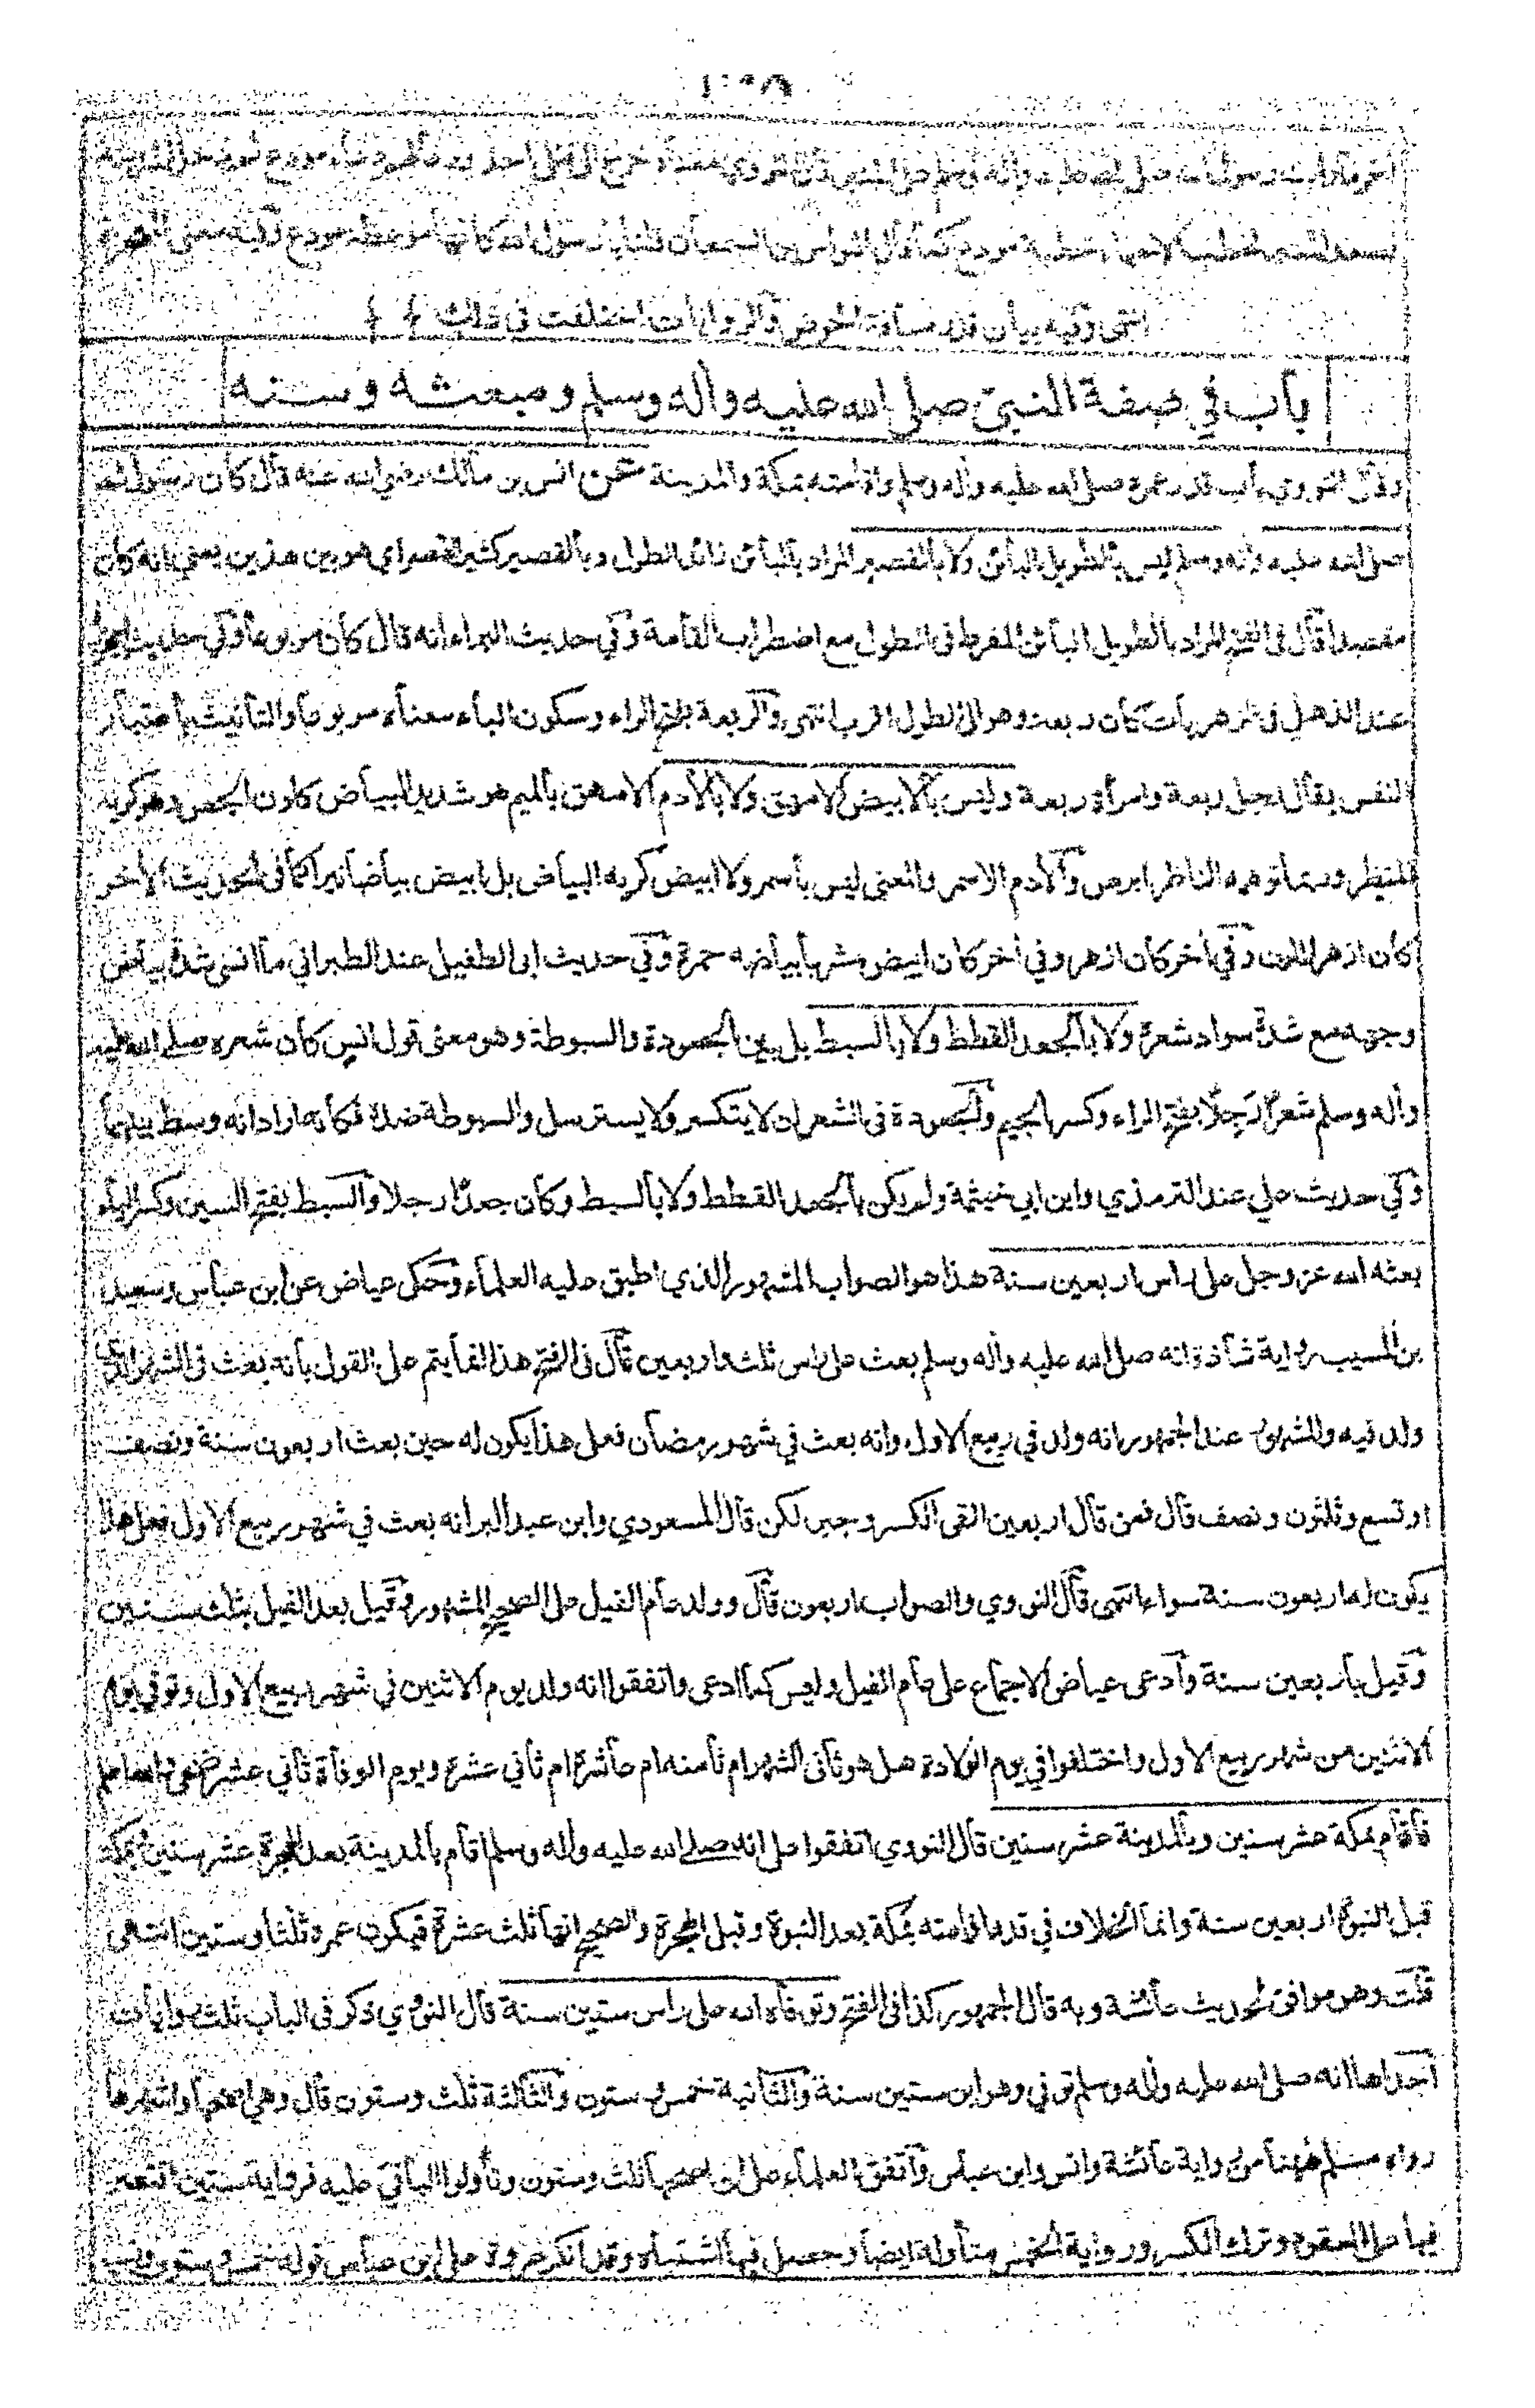 آخر ما رأيت رسول الله صلى الله عليه وآله وسلم على المنبر قال النووي معناه خرج الى قتلى احد
المنبر كالمودع خطبة مودع كما قال النواس بن السمعان قلنا يا رسول الله كأنها موعظة مودع وفيه معنى المعجزة
انتهى وفيه بيان قدر مسافة الحوض والروايات اختلفت في ذلك
باب في صفة النبي صلى الله عليه وآله وسلم ومبعثه وسنه
وقال النووي باب قدر عمره صلى الله عليه وآله وسلم واقامته بمكة والمدينة عن انس بن مالك رضي الله عنه قال كان رسول الله
صلى الله عليه وآله وسلم ليس بالطويل البائن ولا بالقصير المراد بالبائن زائد الطول وبالقصير كثير القصر اي هو بين هذين يعني انه كان
مقصدا قال في الفتح المراد بالطويل البائن المفرط في الطول مع اضطراب القامة وفي حديث البراء انه قال كان مربوعا وفي حديث
عند الذهلي في الزهريات كان ربعة وهو الى الطول اقرب انتهى والربعة بفتح الراء وسكون الباء معناه مربوعا والتأنيث باعتبار
النفس يقال رجل ربعة وامرأة ربعة وليس بالابيض الامهق ولا بالآدم الامهق بالميم هو شديد البياض كلون الجص وهو كريه
المنظر وربما توهمه الناظر ابرص والآدم الاسمر والمعنى ليس بأسمر ولا ابيض كريه البياض بل ابيض بياضا نيرا كما في الحديث الآخر
كان ازهر اللون وفي آخر كان ازهر وفي آخر كان ابيض مشربا بياضه حمرة وفي حديث ابي الطفيل عند الطبراني ما انسى شدة بياض
وجهه مع شدة سواد شعره ولا بالجعد القطط ولا بالسبط بل بين الجعودة والسبوطة وهو معنى قول انس كان شعره صلى الله عليه
وآله وسلم شعرًا رَجِلًا بفتح الراء وكسر الجيم والجعودة في الشعر ان لا يتكسر ولا يسترسل والسبوطة ضده فكأنه اراد انه وسط بينهما
وفي حديث علي عند الترمذي وابن ابي خيثمة ولم يكن بالجعد القطط ولا بالسبط وكان جعدًا رجلا والسبط بفتح السين وكسر الباء
بعثه الله عز وجل على رأس اربعين سنة هذا هو الصواب المشهور الذي اطبق عليه العلماء وحكى عياض عن ابن عباس وسعيد
بن المسيب رواية شاذة انه صلى الله عليه وآله وسلم بعث على رأس ثلث واربعين قال في الفتح هذا انما يتم على القول بأنه بعث في الشهر الذي
ولد فيه والمشهور عند الجمهور انه ولد في ربيع الاول وانه بعث في شهر رمضان فعلى هذا يكون له حين بعث اربعون سنة ونصف
او تسع وثلثون ونصف قال فمن قال اربعين القى الكسر وجبر لكن قال المسعودي وابن عبد البر انه بعث في شهر ربيع الاول فعلى هذا
يكون له اربعون سنة سواء انتهى قال النووي والصواب اربعون قال وولد عام الفيل على الصحيح المشهور وقيل بعد الفيل بثلث سنين
وقيل باربعين سنة وادعى عياض الاجماع على عام الفيل وليس كما ادعى واتفقوا انه ولد يوم الاثنين في شهر ربيع الاول وتوفي يوم
الاثنين من شهر ربيع الاول واختلفوا في يوم الولادة هل هو ثاني الشهر ام ثامنه ام عاشره ام ثاني عشره ويوم الوفاة ثاني عشر ضحى والله اعلم
فأقام بمكة عشر سنين وبالمدينة عشر سنين قال النووي اتفقوا على انه صلى الله عليه وآله وسلم اقام بالمدينة بعد الهجرة عشر سنين وبمكة
قبل النبوة اربعين سنة وانما الخلاف في قدر اقامته بمكة بعد النبوة وقبل الهجرة والصحيح انها ثلث عشرة فيكون عمره ثلثا وستين انتهى
قلت وهو موافق لحديث عائشة وبه قال الجمهور كذا في الفتح وتوفاه الله على رأس ستين سنة قال النووي ذكر في الباب ثلث روايات
احداها انه صلى الله عليه وآله وسلم توفي وهو ابن ستين سنة والثانية خمس وستون والثالثة ثلث وستون قال وهي اصحها واشهرها
رواه مسلم ههنا من رواية عائشة وانس وابن عباس واتفق العلماء على ان اصحها ثلث وستون وتأولوا الباقي عليه فرواية ستين اقتصر
فيها على العقود وترك الكسر ورواية الخمس متأولة ايضا وحصل فيها اشتباه وقد انكر عروة على ابن عباس قوله خمس وستون